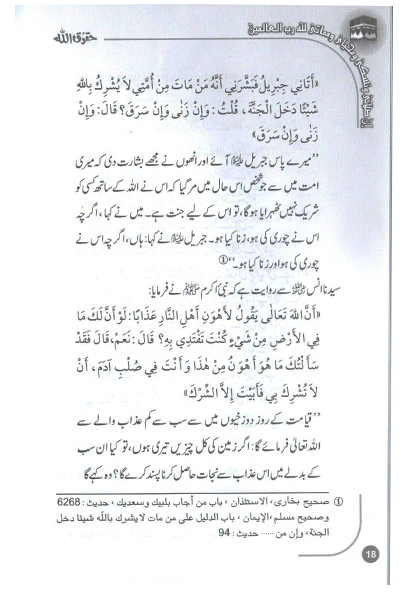 حقوق اللہ
إن صلاتي ونسكي ومحياي ومماتي لله رب العالمين
«أَتَانِي جِبْرِيلُ فَبَشَّرَنِي أَنَّهُ مَنْ مَاتَ مِنْ أُمَّتِي لَا يُشْرِكُ بِاللَّهِ
شَيْئًا دَخَلَ الْجَنَّةَ، قُلْتُ: وَإِنْ زَنَى وَإِنْ سَرَقَ؟ قَالَ: وَإِنْ
زَنَى وَإِنْ سَرَقَ»
’’میرے پاس جبریل علیہ السلام آئے اور انھوں نے مجھے بشارت دی کہ میری
امت میں سے جو شخص اس حال میں مر گیا کہ اس نے اللہ کے ساتھ کسی کو
شریک نہیں ٹھہرایا ہوگا، تو اس کے لیے جنت ہے۔ میں نے کہا، اگرچہ
اس نے چوری کی ہو، زنا کیا ہو۔ جبریل علیہ السلام نے کہا: ہاں، اگرچہ اس نے
چوری کی ہو اور زنا کیا ہو۔‘‘①
سیدنا انس رضی اللہ عنہ سے روایت ہے کہ نبی اکرم ﷺ نے فرمایا:
«أَنَّ اللَّهَ تَعَالَى يَقُولُ لِأَهْوَنِ أَهْلِ النَّارِ عَذَابًا: لَوْ أَنَّ لَكَ مَا
فِي الْأَرْضِ مِنْ شَيْءٍ كُنْتَ تَفْتَدِي بِهِ؟ قَالَ: نَعَمْ، قَالَ فَقَدْ
سَأَلْتُكَ مَا هُوَ أَهْوَنُ مِنْ هَذَا وَأَنْتَ فِي صُلْبِ آدَمَ، أَنْ
لَا تُشْرِكَ بِي فَأَبَيْتَ إِلَّا الشِّرْكَ»
’’قیامت کے روز دوزخیوں میں سے سب سے کم عذاب والے سے
اللہ تعالیٰ فرمائے گا: اگر زمین کی کل چیزیں تیری ہوں، تو کیا ان سب
کے بدلے میں اس عذاب سے نجات حاصل کرنا پسند کرے گا؟ وہ کہے گا
① صحیح بخاری، الاستئذان، باب من أجاب بلبیك وسعدیك، حدیث: 6268
وصحیح مسلم، الإیمان، باب الدلیل علی من مات لا یشرك باللّٰه شیئا دخل
الجنة، وإن من ..... حدیث: 94
18